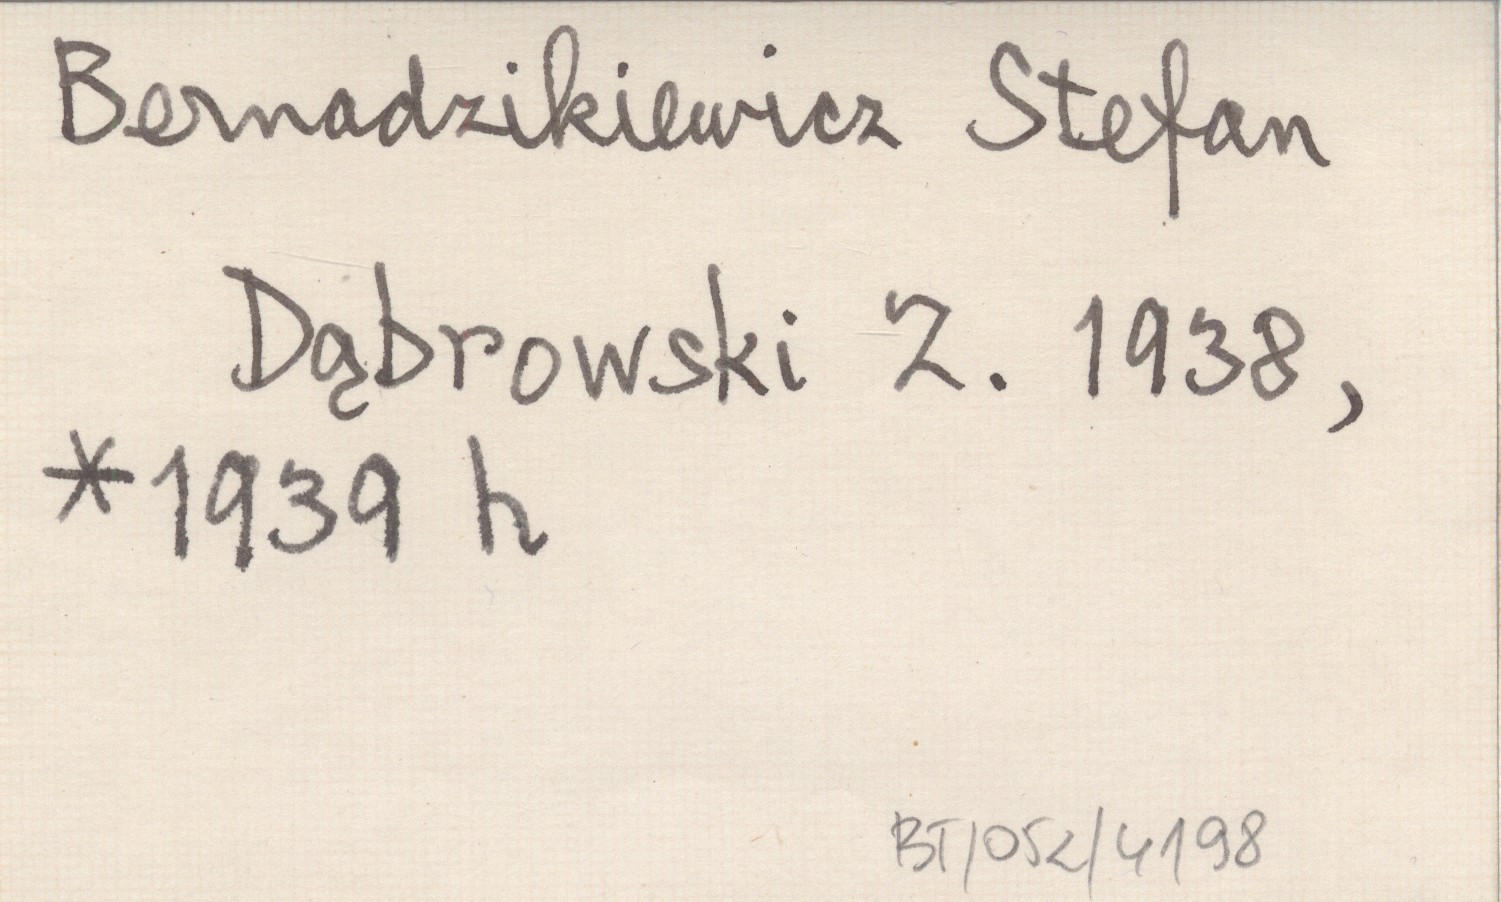 Bernadzikiewicz Stefan
Dąbrowski Z. 1938,
*1939 h
BT/052/4198